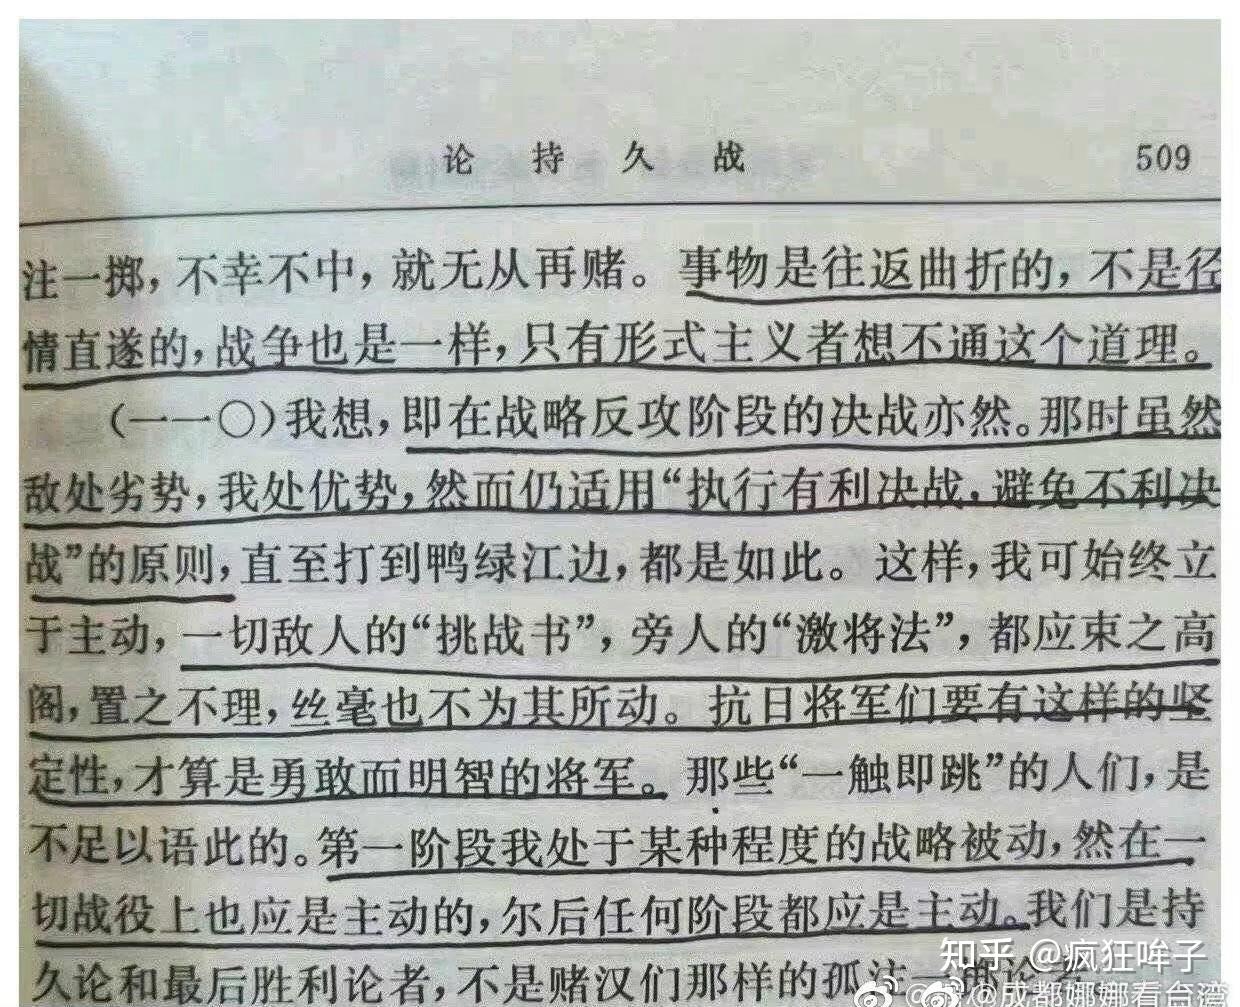 论持久战 509
注一掷，不幸不中，就无从再赌。事物是往返曲折的，不是径
情直遂的，战争也是一样，只有形式主义者想不通这个道理。
（一一〇）我想，即在战略反攻阶段的决战亦然。那时虽然
敌处劣势，我处优势，然而仍适用“执行有利决战，避免不利决
战”的原则，直至打到鸭绿江边，都是如此。这样，我可始终立
于主动，一切敌人的“挑战书”，旁人的“激将法”，都应束之高
阁，置之不理，丝毫也不为其所动。抗日将军们要有这样的坚
定性，才算是勇敢而明智的将军。那些“一触即跳”的人们，是
不足以语此的。第一阶段我处于某种程度的战略被动，然在一
切战役上也应是主动的，尔后任何阶段都应是主动。我们是持
久论和最后胜利论者，不是赌汉们那样的孤注一
知乎 @疯狂哞子
@成都娜娜看台湾